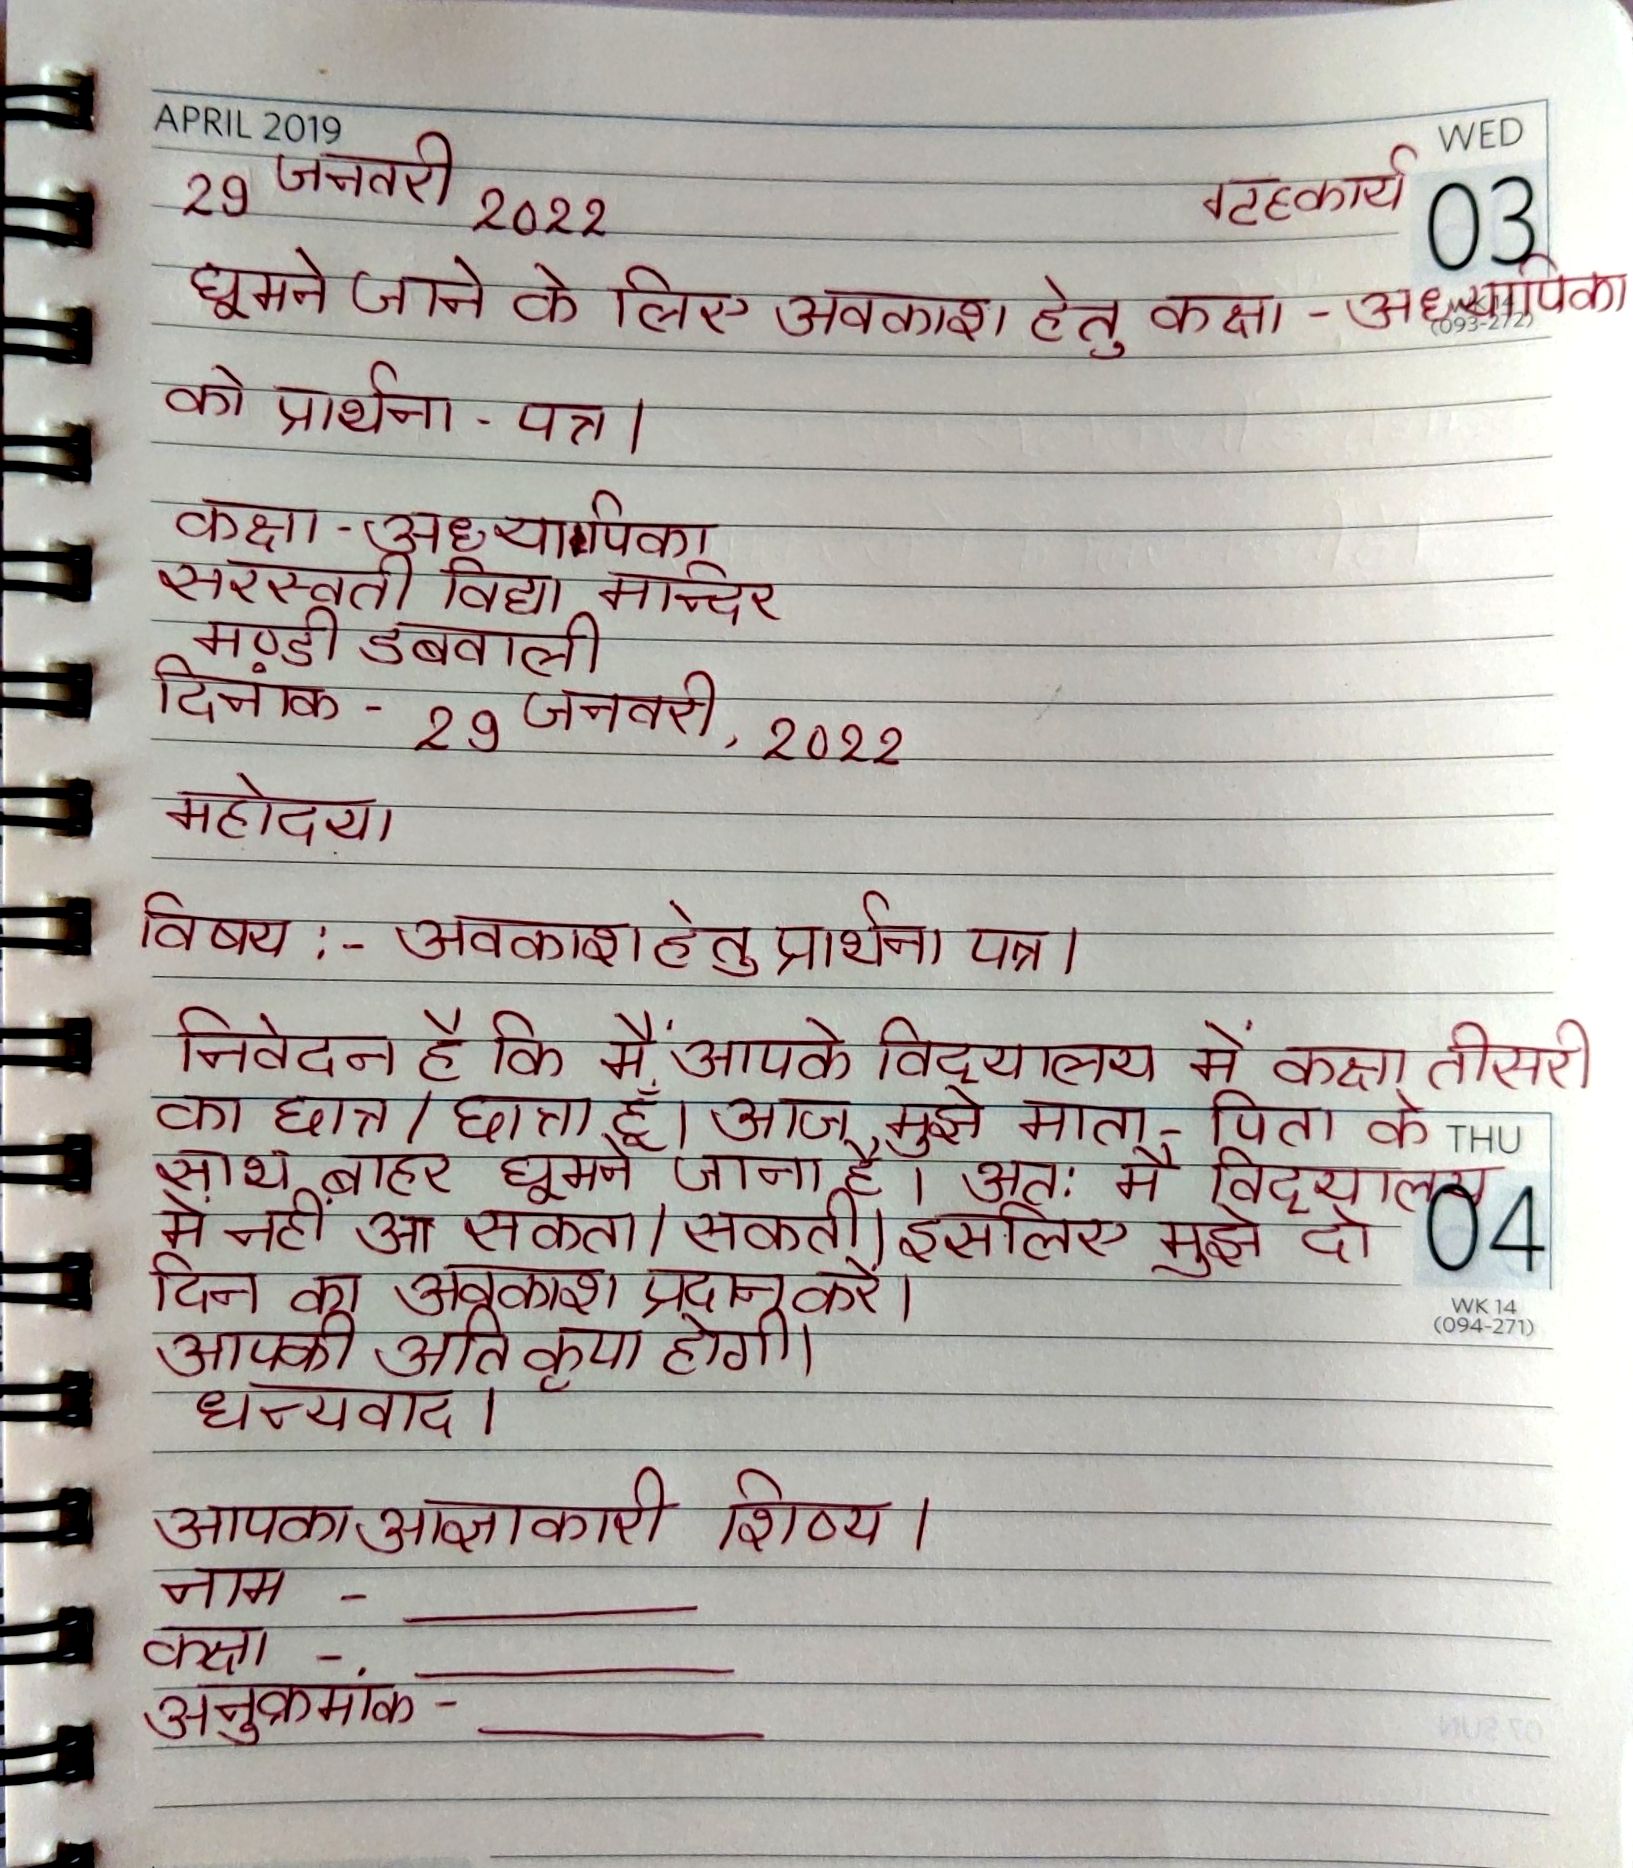 APRIL 2019 WED
29 जनवरी 2022 गृहकार्य 03
WK 14
(093-272)
घूमने जाने के लिए अवकाश हेतु कक्षा - अध्यापिका
को प्रार्थना - पत्र।
कक्षा - अध्यापिका
सरस्वती विद्या मन्दिर
मण्डी डबवाली
दिनांक - 29 जनवरी, 2022
महोदया
विषय :- अवकाश हेतु प्रार्थना पत्र।
निवेदन है कि मैं आपके विद्यालय में कक्षा तीसरी
का छात्र / छात्रा हूँ। आज मुझे माता - पिता के THU
साथ बाहर घूमने जाना है। अतः मैं विद्यालय
में नहीं आ सकता / सकती। इसलिए मुझे दो 04
दिन का अवकाश प्रदान करें।
WK 14
(094-271)
आपकी अति कृपा होगी।
धन्यवाद।
आपका आज्ञाकारी शिष्य।
नाम -
कक्षा -
अनुक्रमांक -